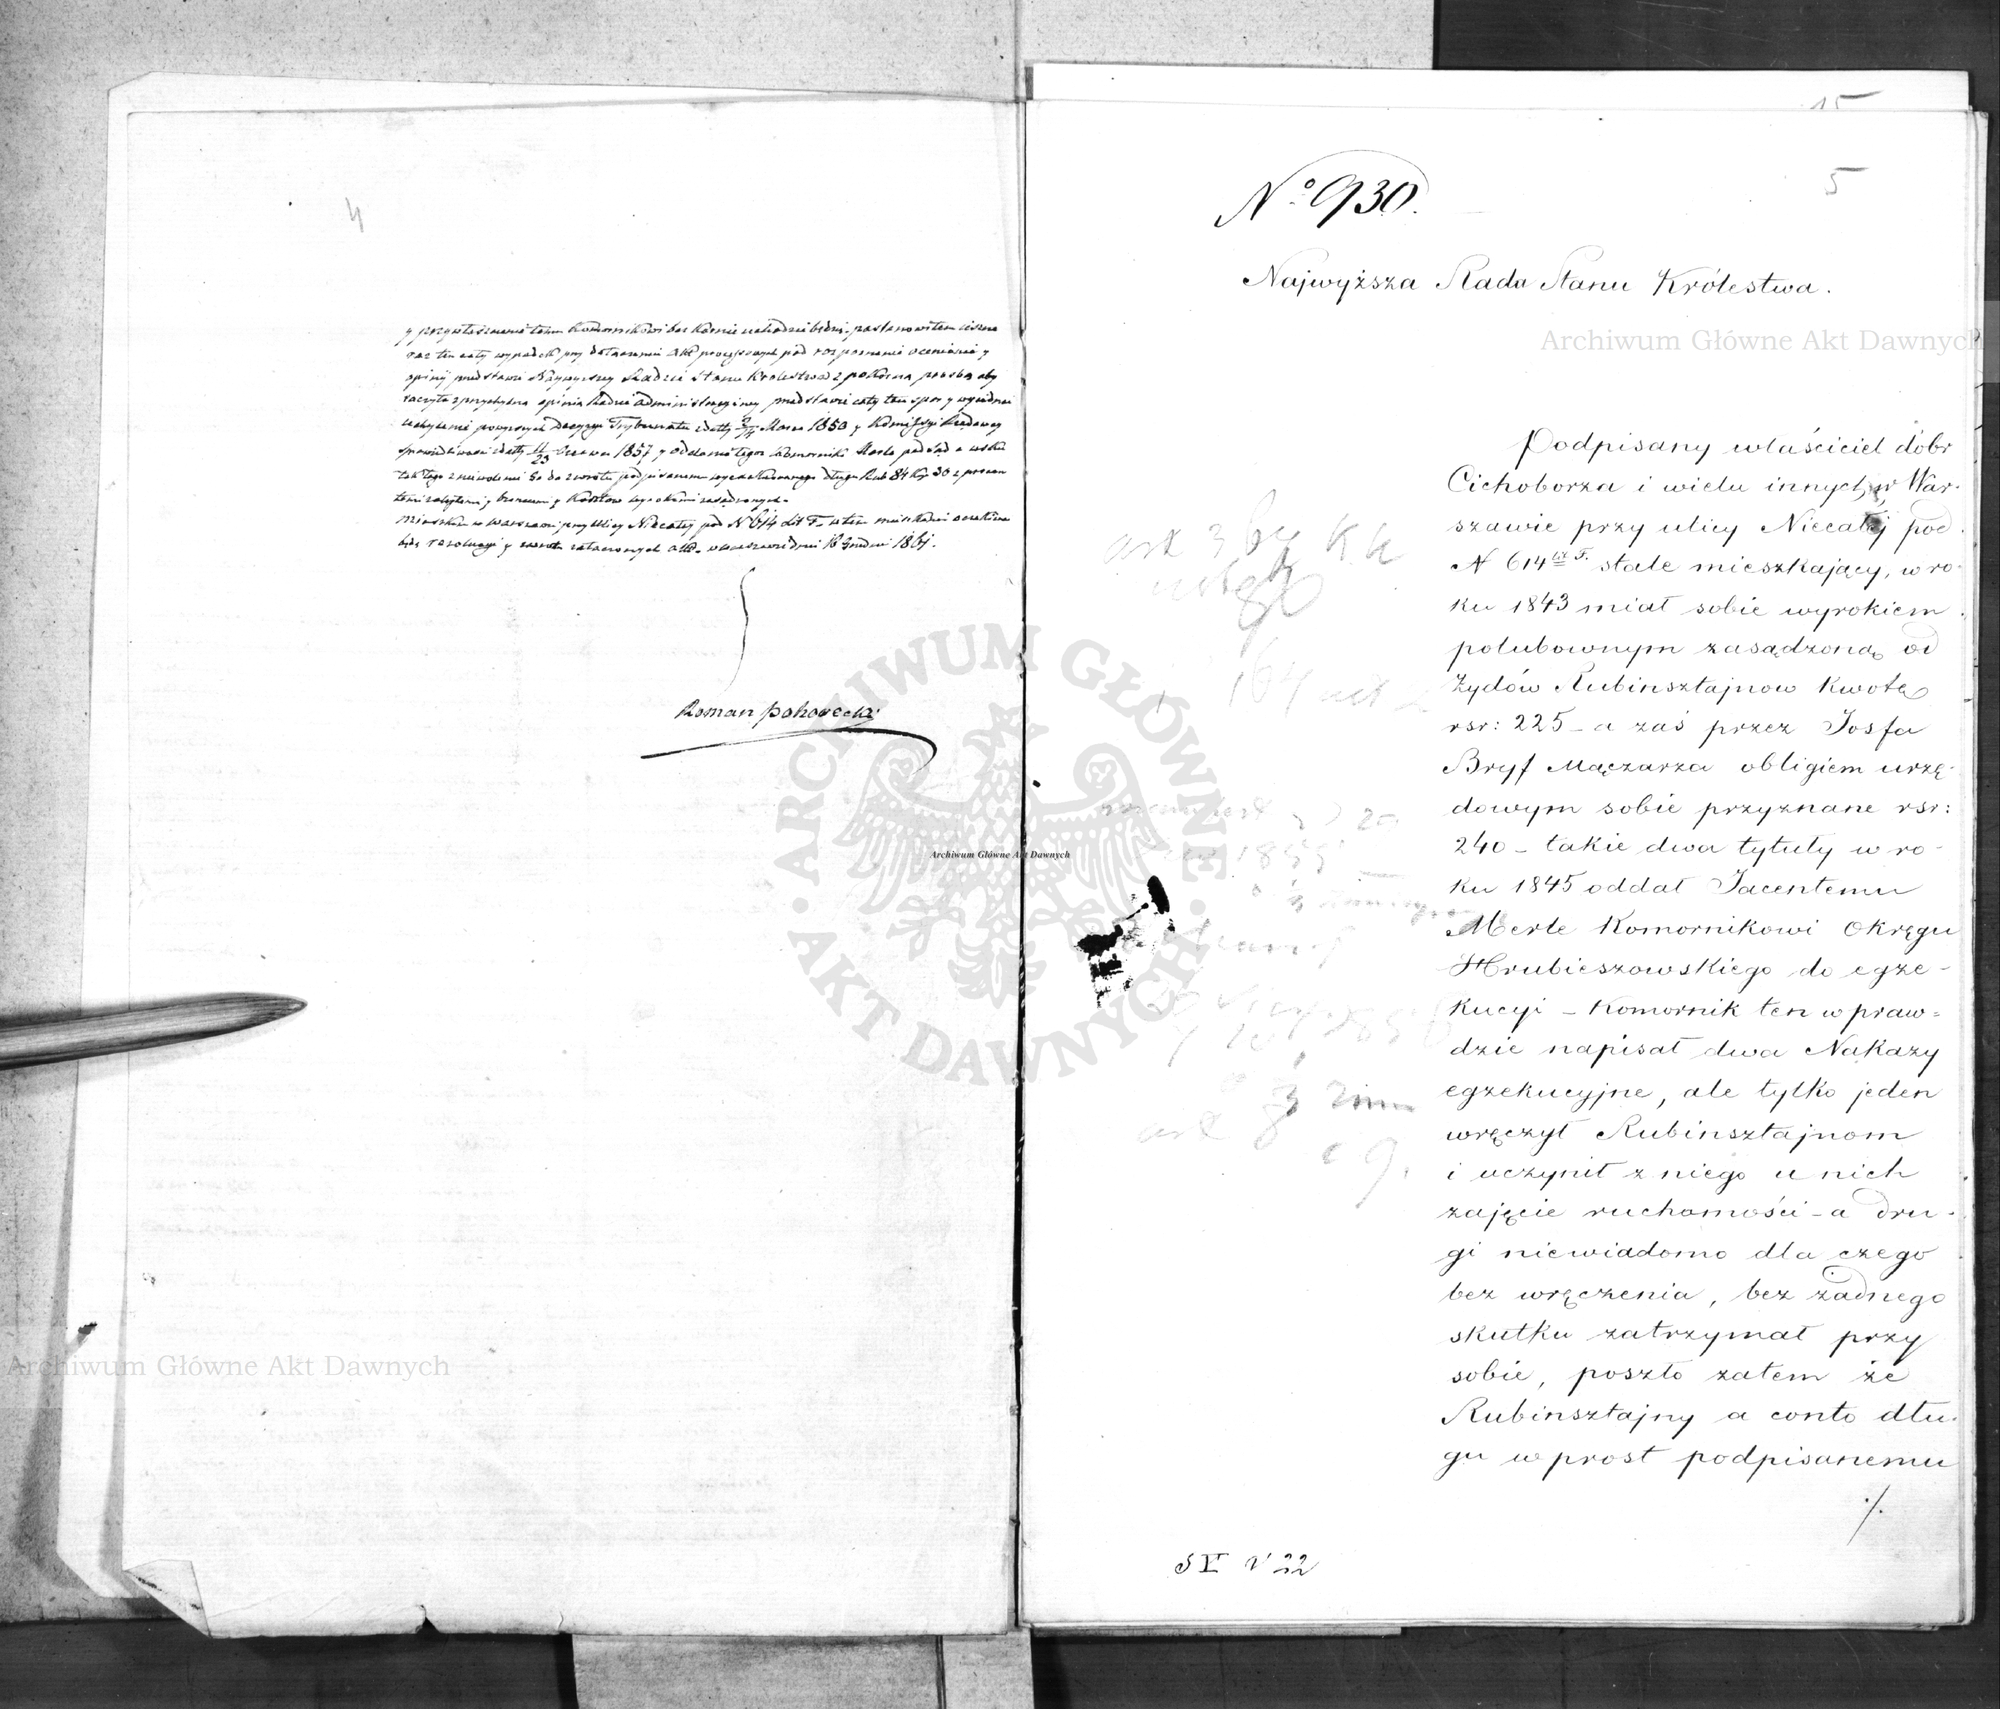 4
y przywłaszczenie temu Komornikowi bez karnie uchodzić będzie, postanowiłem jeszcze
raz ten cały wypadek przy dołączeniu akt processowych pod rozpoznanie ocenienie y
opinij przedstawić Naywyższey Radzie Stanu Królestwa z pokorną prośbą aby
raczyła z przychylną opinią Radzie Administracyjney przedstawić cały ten spór y wyjednać
uchylenie powyższych decyzyi Trybunału z daty Marca 1850 y Kommissyi Rządowey
Sprawiedliwości z daty 11/23 Czerwca 1857 y oddanie tegoż Komornika Merle pod Sąd a w sku
tek tego znaglenie Go do zwrotu podpisanemu wyexekwowanego długu Rub 84 Kop 30 z procen
tem zaległym y bieżącym y Kosztów wyrokami zasądzonych.
Mieszka w Warszawie przy Ulicy Niecałej pod N 614 lit F. w tem mieszkaniu oczekiwa
będę rezolucyi y zwrotu załączonych akt. w Warszawie dnia 18 Grudnia 1861.
Roman Pohorecki
15
5
No 930.
Najwyższa Rada Stanu Królestwa.
Podpisany właściciel dóbr
Cichoborza i wielu innych, w War-
szawie przy ulicy Niecałej pod
N 614 lit F. stale mieszkający, w ro-
ku 1843 miał sobie wyrokiem
polubownym zasądzoną od
Żydów Rubinsztajnow kwotę
rsr: 225 – a zaś przez Josfa
Bryf Mączarza obligiem urzę-
dowym sobie przyznane rsr:
240 – takie dwa tytuły w ro-
ku 1845 oddał Jacentemu
Merle Komornikowi Okręgu
Hrubieszowskiego do egze-
kucyi – Komornik ten wpraw-
dzie napisał dwa Nakazy
egzekucyjne, ale tylko jeden
wręczył Rubinsztajnom
i uczynił z niego u nich
zajęcie ruchomości – a dru-
gi niewiadomo dla czego
bez wręczenia, bez żadnego
skutku zatrzymał przy
sobie, poszło zatem że
Rubinsztajny a conto dłu-
gu wprost podpisanemu
./.
S V N 22
Archiwum Główne Akt Dawnych
Archiwum Główne Akt Dawnych
Archiwum Główne Akt Dawnych
ARCHIWUM GŁÓWNE AKT DAWNYCH